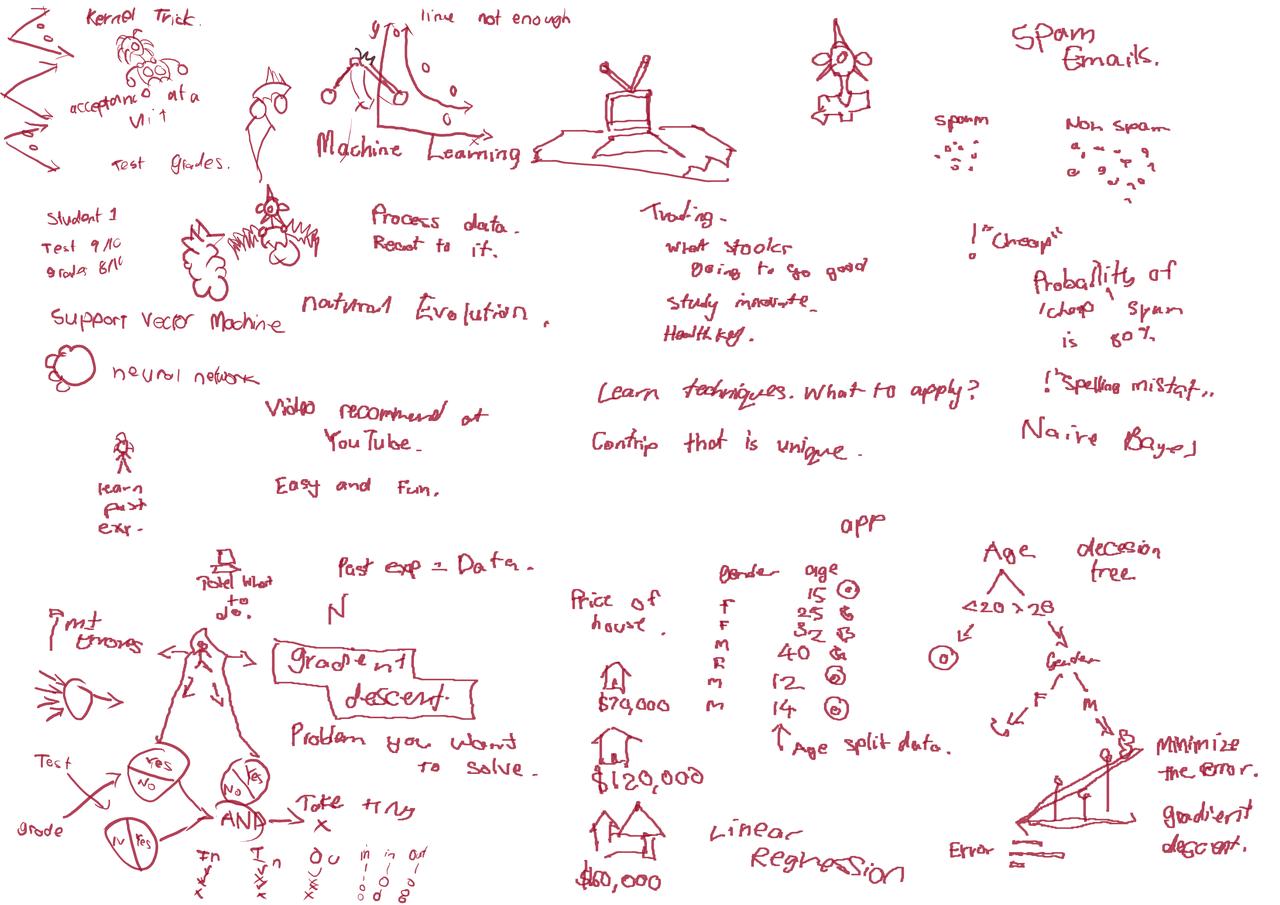 Kernel Trick.
acceptance at a
Test grades.
Student 1
Test 9/10
grade 8/10
Support Vector Machine
neural network
learn
past
exr.
line not enough
y
x
x
Machine Learning
Process data.
React to it.
natural Evolution.
Video recommend at
YouTube.
Easy and Fun.
Past exp = Data.
N
Trading.
what stocks
going to go good
Study
Learn techniques. What to apply?
Contrip that is unique.
Spam
Emails.
Spam
Non spam
! "Cheap"
Probality of
'cheap spam
is 80%
Naive Bayes
what
to
do.
gradient
descent.
Problem you want
to solve.
Test
grade
Yes
No
Yes
No
N
Yes
AND
Take
x
In
In
Ou
in
in
out
Price of
house.
$70,000
$120,000
$160,000
Linear
Regression
app
gender age
15
F 25
F 32
M 40
F 12
M 14
M
Age split data.
Age
decesion
tree
<20 >28
Gender
F
M
Minimize
the error.
gradient
descent.
Error